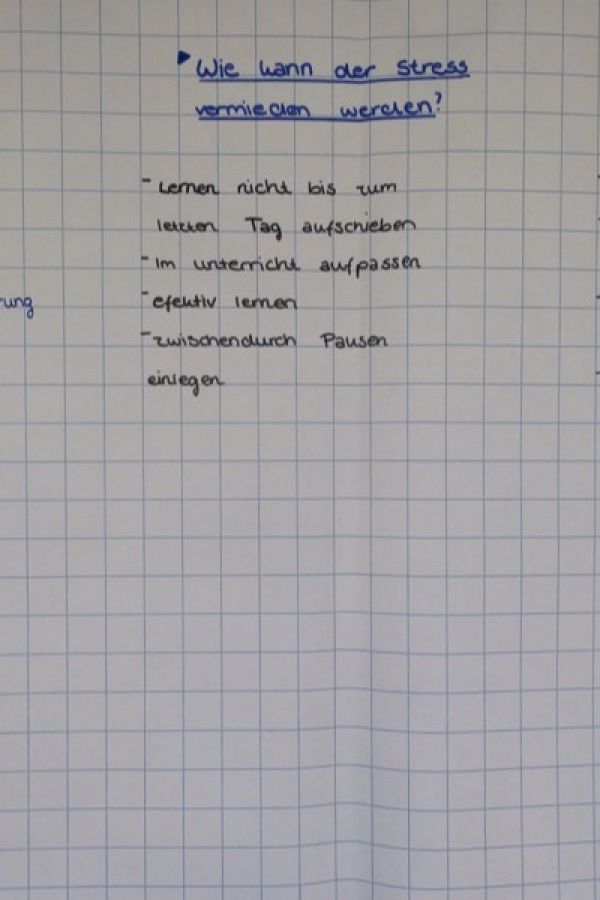 Wie kann der Stress
vermieden werden?
- Lernen nicht bis zum
letzten Tag aufschieben
- Im unterricht aufpassen
rung
- efektiv lernen
- zwischendurch Pausen
einlegen